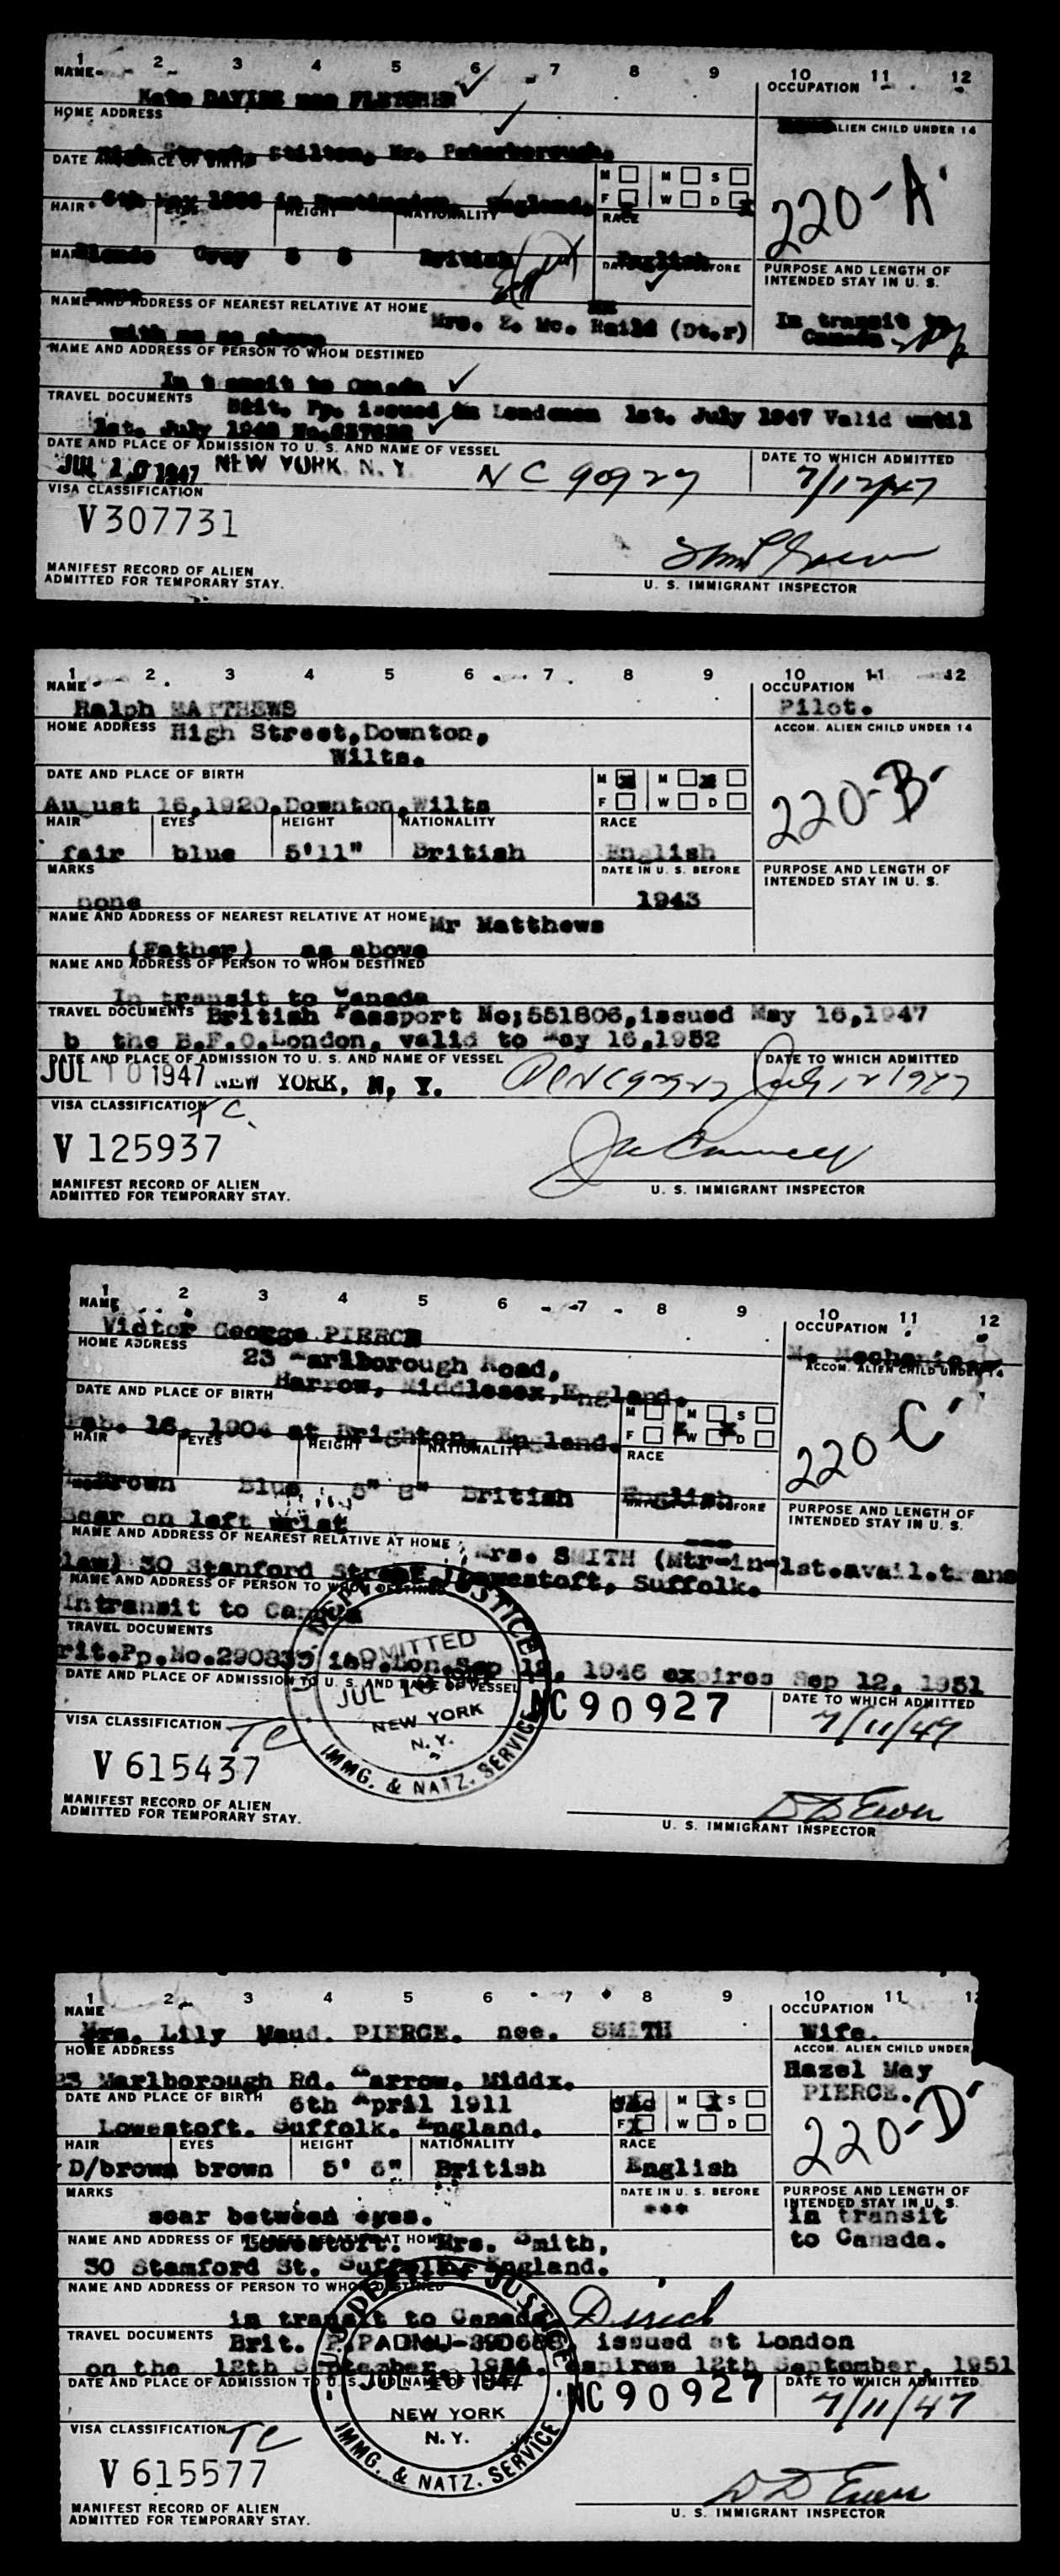 1 2 3 4 5 6 7 8 9 10 11 12
NAME
OCCUPATION
Kate DAVIES nee FLETCHER
HOME ADDRESS
ALIEN CHILD UNDER 14
High Street, Stilton, Nr. Peterborough.
DATE AND PLACE OF BIRTH
M M S
F W D
6th May in Huntingdon, England.
HAIR HEIGHT NATIONALITY RACE
220-A'
Blonde Grey 5 8 British English
PURPOSE AND LENGTH OF
INTENDED STAY IN U. S.
none
NAME AND ADDRESS OF NEAREST RELATIVE AT HOME
Mrs. E. Mc. (Dt.r)
In transit to
Canada
with me as above
NAME AND ADDRESS OF PERSON TO WHOM DESTINED
In transit to Canada
TRAVEL DOCUMENTS
Brit. Pp. issued in 1st. July 1947 Valid until
1st. July
DATE AND PLACE OF ADMISSION TO U. S. AND NAME OF VESSEL
DATE TO WHICH ADMITTED
JUL 10 1947 NEW YORK, N. Y. NC 90927 7/12/47
VISA CLASSIFICATION
V307731
MANIFEST RECORD OF ALIEN
ADMITTED FOR TEMPORARY STAY.
U. S. IMMIGRANT INSPECTOR
1 2 3 4 5 6 7 8 9 10 11 12
NAME
OCCUPATION
Ralph MATTHEWS
Pilot.
HOME ADDRESS High Street,Downton,
ACCOM. ALIEN CHILD UNDER 14
Wilts.
DATE AND PLACE OF BIRTH
M M
F W D
220-B'
August 16,1920.Downton,Wilts
HAIR EYES HEIGHT NATIONALITY RACE
fair blue 5'11" British English
MARKS
DATE IN U. S. BEFORE
PURPOSE AND LENGTH OF
INTENDED STAY IN U. S.
none
1943
NAME AND ADDRESS OF NEAREST RELATIVE AT HOME Mr Matthews
(Father) as above
NAME AND ADDRESS OF PERSON TO WHOM DESTINED
In transit to Canada
TRAVEL DOCUMENTS British Passport No;551806,issued May 16,1947
b the B.F.O.London, valid to May 16,1952
DATE AND PLACE OF ADMISSION TO U. S. AND NAME OF VESSEL
DATE TO WHICH ADMITTED
JUL 10 1947 NEW YORK, N. Y. NC90927 July 12 1947
VISA CLASSIFICATION TC
V 125937
MANIFEST RECORD OF ALIEN
ADMITTED FOR TEMPORARY STAY.
U. S. IMMIGRANT INSPECTOR
1 2 3 4 5 6 7 8 9 10 11 12
NAME
OCCUPATION
Victor George PIERCE
HOME ADDRESS
23 Marlborough Road,
ACCOM. ALIEN CHILD UNDER 14
DATE AND PLACE OF BIRTH Harrow, Middlesex,England.
M M S
F W D
Feb. 16, 1904 at Brighton, England.
HAIR EYES HEIGHT NATIONALITY RACE
220-C'
Brown Blue 5" 8" British English
PURPOSE AND LENGTH OF
INTENDED STAY IN U. S.
Scar on left Wrist
NAME AND ADDRESS OF NEAREST RELATIVE AT HOME Mrs. SMITH (Mtr-in-
1st.avail.trans
law) 30 Stanford Street, Lowestoft, Suffolk.
NAME AND ADDRESS OF PERSON TO WHOM DESTINED
Intransit to Canada
TRAVEL DOCUMENTS
rit.Pp.No.290835 iss.Lon.Sep 12, 1946 expires Sep 12, 1951
DATE AND PLACE OF ADMISSION TO U. S. AND NAME OF VESSEL
DATE TO WHICH ADMITTED
ADMITTED
JUL 10
NEW YORK
N. Y.
IMMG. & NATZ. SERVICE
NC90927 7/11/47
VISA CLASSIFICATION TC
V 615437
MANIFEST RECORD OF ALIEN
ADMITTED FOR TEMPORARY STAY.
D D Ewen
U. S. IMMIGRANT INSPECTOR
1 2 3 4 5 6 7 8 9 10 11
NAME
OCCUPATION
Mrs. Lily Maud. PIERCE. nee. SMITH
Wife.
HOME ADDRESS
ACCOM. ALIEN CHILD UNDER
23 Marlborough Rd. Harrow. Middx.
Hazel May
PIERCE.
DATE AND PLACE OF BIRTH 6th April 1911
M S
F W D
Lowestoft. Suffolk. England.
220-D'
HAIR EYES HEIGHT NATIONALITY RACE
D/brown brown 5' 6" British English
MARKS
DATE IN U. S. BEFORE
PURPOSE AND LENGTH OF
INTENDED STAY IN U. S.
scar between eyes.
***
in transit
to Canada.
NAME AND ADDRESS OF NEAREST RELATIVE AT HOME Lowestoft. Mrs. Smith,
30 Stamford St. Suffolk. England.
NAME AND ADDRESS OF PERSON TO WHOM DESTINED
in transit to Canada
TRAVEL DOCUMENTS Brit. issued at London
on the 12th September, expires 12th September, 1951
DATE AND PLACE OF ADMISSION TO U. S. AND NAME OF VESSEL
DATE TO WHICH ADMITTED
JUL 10 1947
NEW YORK
N. Y.
IMMG. & NATZ. SERVICE
NC90927 7/11/47
VISA CLASSIFICATION TC
V 615577
MANIFEST RECORD OF ALIEN
ADMITTED FOR TEMPORARY STAY.
D D Ewen
U. S. IMMIGRANT INSPECTOR